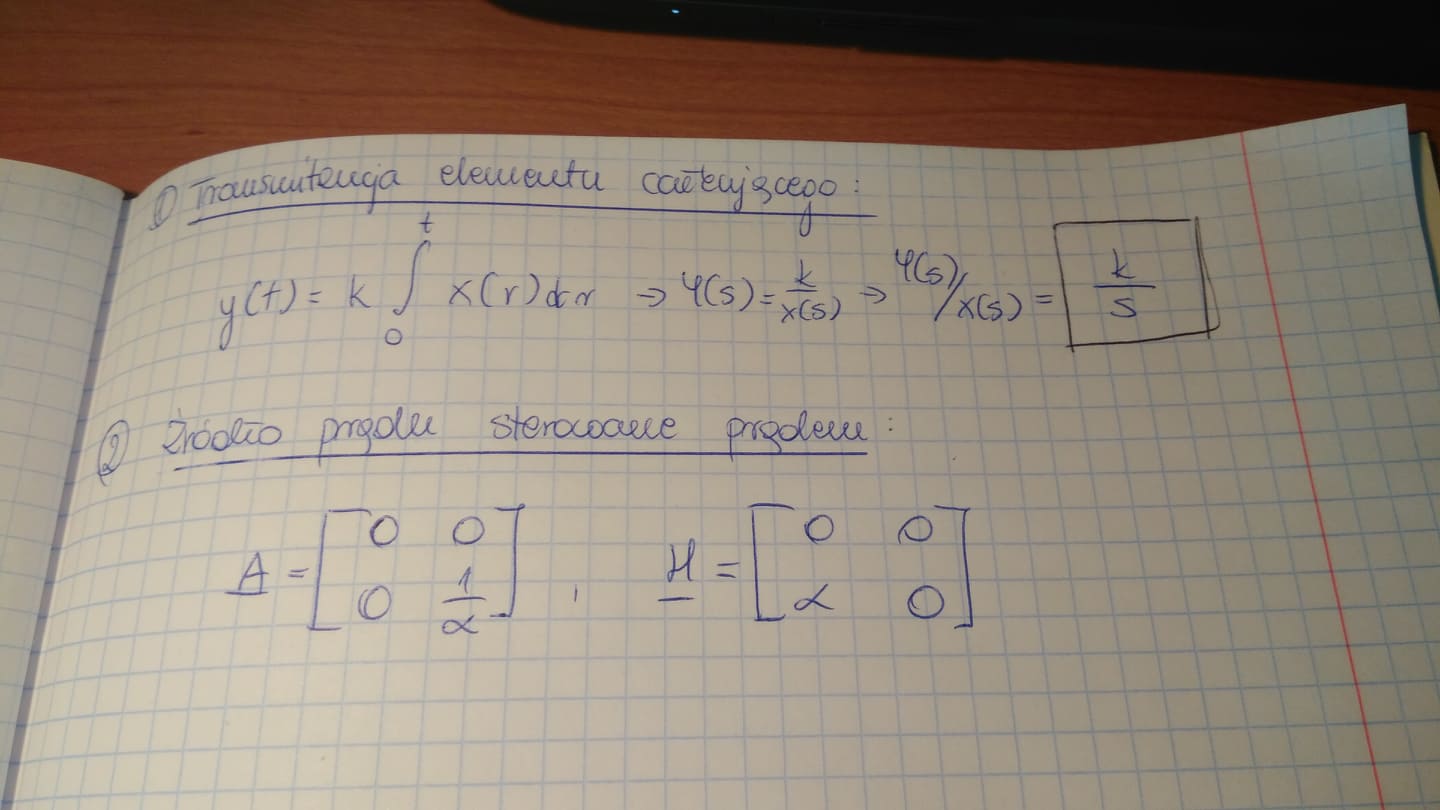 ① Transmitancja elementu całkującego:
y(t) = k ∫₀ᵗ x(r)dr → Y(s) = k/x(s) → Y(s)/x(s) = k/s
② Źródło prądu sterowane prądem:
A = [0 0; 0 1/α] , H = [0 0; α 0]